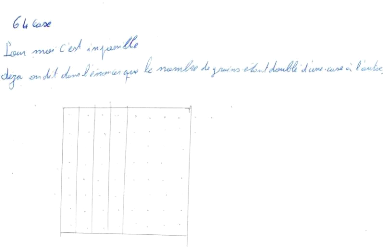 64 case
Pour moi c'est impossible
deja on dit dans l'énoncé que le nombre de grains etant doublé d'une case à l'autre